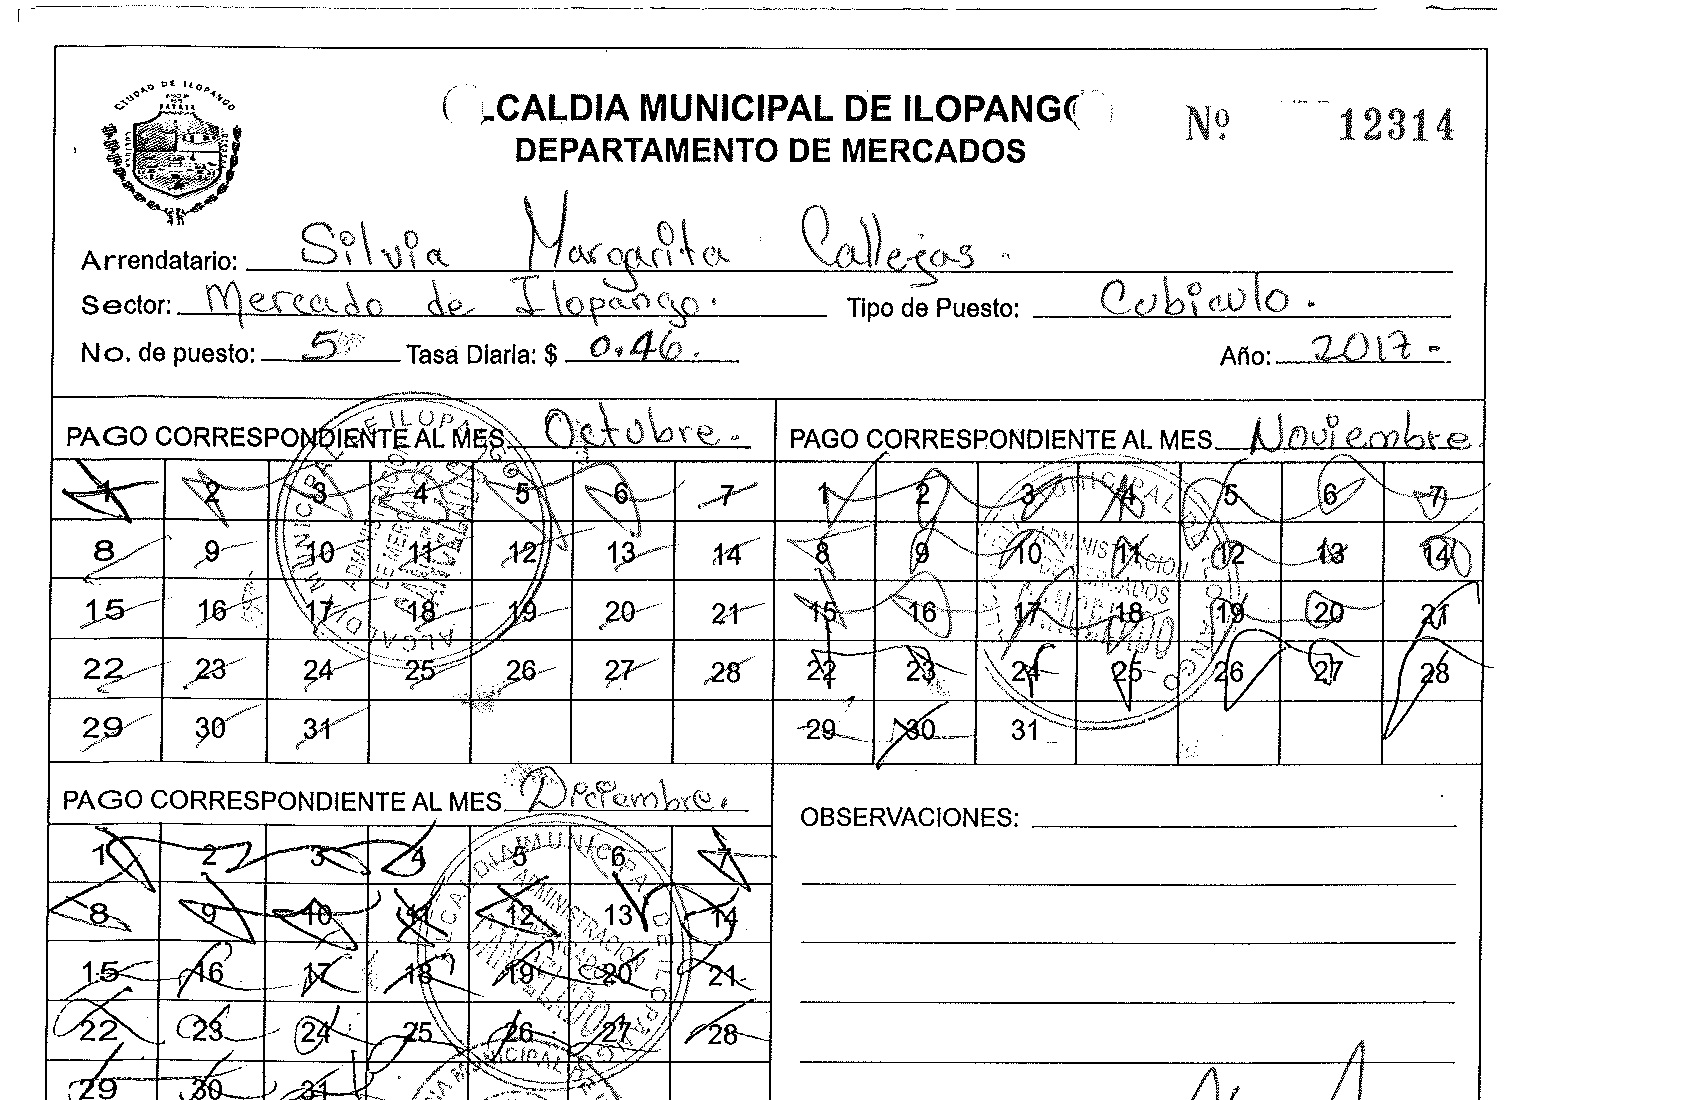 CIUDAD DE ILOPANGO
ALCALDIA MUNICIPAL DE ILOPANGO
Nº 12314
DEPARTAMENTO DE MERCADOS
Arrendatario: Silvia Margarita Callejas.
Sector: Mercado de Ilopango. Tipo de Puesto: Cubiculo.
No. de puesto: 5 Tasa Diaria: $ 0.46. Año: 2017-
PAGO CORRESPONDIENTE AL MES Octubre. PAGO CORRESPONDIENTE AL MES Noviembre.
1 2 3 4 5 6 7 1 2 3 4 5 6 7
8 9 10 11 12 13 14 8 9 10 11 12 13 14
15 16 17 18 19 20 21 15 16 17 18 19 20 21
22 23 24 25 26 27 28 22 23 24 25 26 27 28
29 30 31 29 30 31
PAGO CORRESPONDIENTE AL MES Diciembre. OBSERVACIONES:
1 2 3 4 5 6 7
8 9 10 11 12 13 14
15 16 17 18 19 20 21
22 23 24 25 26 27 28
29 30 31